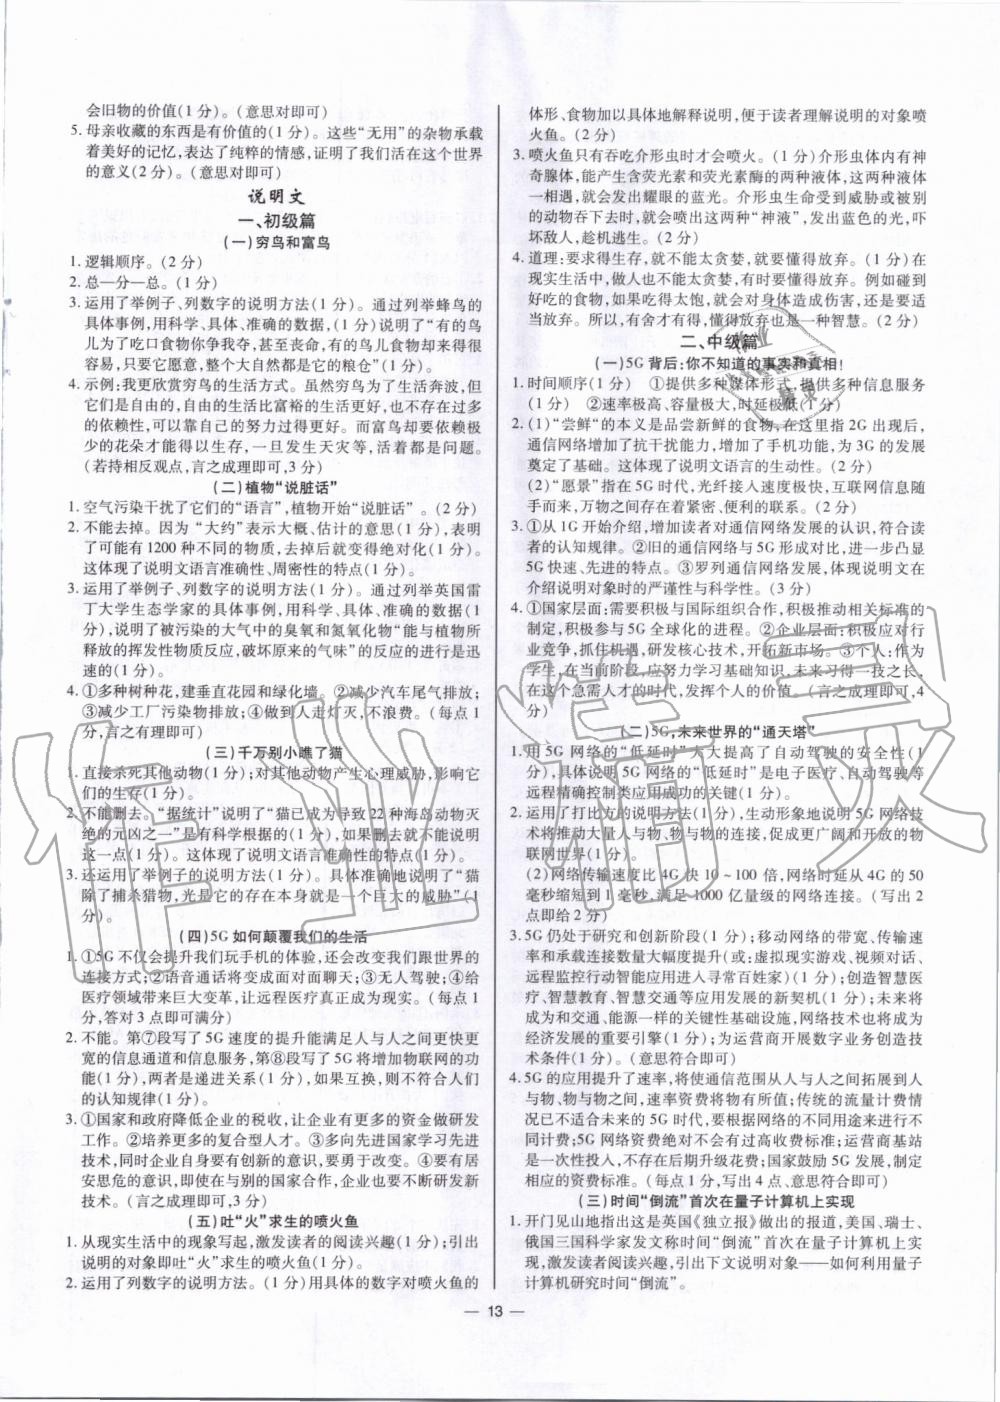 会旧物的价值(1 分)。(意思对即可)
5. 母亲收藏的东西是有价值的(1 分)。这些“无用”的杂物承载
着美好的记忆,表达了纯粹的情感,证明了我们活在这个世界
的意义(2 分)。(意思对即可)
说明文
一、初级篇
(一)穷鸟和富鸟
1. 逻辑顺序。(2 分)
2. 总—分—总。(1 分)
3. 运用了举例子、列数字的说明方法(1 分)。通过列举蜂鸟的
具体事例,用科学、具体、准确的数据,(1 分)说明了“有的鸟
儿为了吃口食物你争我夺,甚至丧命,有的鸟儿食物却多得来
来,只要它愿意,整个大自然都是它的粮仓”(1 分)。
4. 示例:我更欣赏穷鸟的生活方式。虽然穷鸟为了生活奔波,但
它们是自由的,自由的生活比富裕的生活更好,它们没有过多
的依赖性,可以靠自己的努力过得更好。而富鸟却要依赖极
少的花朵才能得以生存,一旦发生天灾等,活着都成问题。
(若持相反观点,言之成理即可,3 分)
(二)植物“说脏话”
1. 空气污染干扰了它们的“语言”,植物开始“说脏话”。(2 分)
2. 不能去掉。因为“大约”表示大概、估计的意思(1 分),表明
了可能有 1200 种不同的物质,去掉后就变得绝对化(1 分)。
这体现了说明文语言准确性、周密性的特点(1 分)。
3. 运用了举例子、列数字的说明方法(1 分)。通过列举英国雷
丁大学生态学家的具体事例,用科学、具体、准确的数据(1
分),说明了被污染的大气中的臭氧和氮氧化物“能与植物所
释放的挥发性物质反应,破坏原来的气味”的反应的进行是迅
速的(1 分)。
4. ①多种树种花,建垂直花园和绿化墙。②减少汽车尾气排放;
③减少工厂污染物排放;④做到人走灯灭,不浪费。(每点 1
分,言之有理即可)
(三)千万别小瞧了猫
1. 直接杀死其他动物(1 分);对其他动物产生心理威胁,影响它
们的生存(1 分)。
2. 不能删去。“据统计”说明了“猫已成为导致 22 种海岛动物灭
绝的元凶之一”是有科学根据的(1 分),如果删去就不能说明
这一点(1 分)。这体现了说明文语言准确性的特点(1 分)。
3. 还运用了举例子的说明方法(1 分)。具体准确地说明了“猫
除了捕杀猎物,光是它的存在本身就是一个巨大的威胁”(1
分)。
(四)5G 如何颠覆我们的生活
1. ①5G 不仅会提升我们玩手机的体验,还会改变我们跟世界的
连接方式;②语音通话将变成面对面聊天;③无人驾驶;④给
医疗领域带来巨大变革,让远程医疗真正成为现实。(每点 1
分,答对 3 点即可满分)
2. 不能。第⑦段写了 5G 速度的提升能满足人与人之间更快更
宽的信息通道和信息服务,第⑧段写了 5G 将增加物联网的功
能(1 分),两者是递进关系(1 分),如果互换,则不符合人们
的认知规律(1 分)。
3. ①国家和政府降低企业的税收,让企业有更多的资金做研发
工作。②培养更多的复合型人才。③多向先进国家学习先进
技术,同时企业自身要有创新的意识,要勇于改变。④要有居
安思危的意识,即使在与别的国家合作,企业也要不断研发新
技术。(言之成理即可,3 分)
(五)吐“火”求生的喷火鱼
1. 从现实生活中的现象写起,激发读者的阅读兴趣(1 分);引出
说明的对象即吐“火”求生的喷火鱼(1 分)。
2. 运用了列数字的说明方法。(1 分)用具体的数字对喷火鱼的
体形、食物加以具体地解释说明,便于读者理解说明的对象喷
火鱼。(2 分)
3. 喷火鱼只有吞吃介形虫时才会喷火。(1 分)介形虫体内有神
奇腺体,能产生含荧光素和荧光素酶的两种液体,这两种液体
一相遇,就会发出耀眼的蓝光。介形虫生命受到威胁或被别
的动物吞下去时,就会喷出这两种“神液”,发出蓝色的光,吓
坏敌人,趁机逃生。(2 分)
4. 道理:要求得生存,就不能太贪婪,就要懂得放弃。(1 分)在
现实生活中,做人也不能太贪婪,有时要懂得放弃。例如碰到
好吃的食物,如果吃得太饱,就会对身体造成伤害,还是要适
当放弃。所以,有舍才有得,懂得放弃也是一种智慧。(2 分)
二、中级篇
(一)5G 背后:你不知道的事实和真相!
1. 时间顺序(1 分) ①提供多种媒体形式,提供多种信息服务
(1 分) ②速率极高、容量极大,时延极低(1 分)
2. (1)“尝鲜”的本义是品尝新鲜的食物,在这里指 2G 出现后,
通信网络增加了抗干扰能力,增加了手机功能,为 3G 的发展
奠定了基础。这体现了说明文语言的生动性。(2 分)
(2)“愿景”指在 5G 时代,光纤接入速度极快,互联网信息随
手而来,万物之间存在着紧密、便利的联系。(2 分)
3. ①从 1G 开始介绍,增加读者对通信网络发展的认识,符合读
者的认知规律。②旧的通信网络与 5G 形成对比,进一步凸显
5G 快速、先进的特点。③罗列通信网络发展,体现说明文在
介绍说明对象时的严谨性与科学性。(3 分)
4. ①国家层面:需要积极与国际组织合作,积极推动相关标准的
制定,积极参与 5G 全球化的进程。②企业层面:积极应对行
业竞争,抓住机遇,研发核心技术,开拓新市场。③个人:作为
学生,在当前阶段,应努力学习基础知识,未来习得一技之长,
在这个急需人才的时代,发挥个人的价值。(言之成理即可,4
分)
(二)5G,未来世界的“通天塔”
1. 用 5G 网络的“低延时”大大提高了自动驾驶的安全性(1
分),具体说明 5G 网络的“低延时”是电子医疗、自动驾驶等
远程精确控制类应用成功的关键(1 分)。
2. 运用了打比方的说明方法(1 分),生动形象地说明 5G 网络技
术将推动大量人与物、物与物的连接,促成更广阔和开放的物
联网世界(1 分)。
(2)网络传输速度比 4G 快 10～100 倍,网络时延从 4G 的 50
毫秒缩短到 1 毫秒,满足~1000 亿量级的网络连接。(写出 2
点即给 2 分)
3. 5G 仍处于研究和创新阶段(1 分);移动网络的带宽、传输速
率和承载连接数量大幅度提升(或:虚拟现实游戏、视频对话、
远程监控行动智能应用进入寻常百姓家)(1 分);创造智慧医
疗、智慧教育、智慧交通等应用发展的新契机(1 分);未来将
成为和交通、能源一样的关键性基础设施,网络技术也将成为
经济发展的重要引擎(1 分);为运营商开展数字业务创造技
术条件(1 分)。(意思符合即可)
4. 5G 的应用提升了速率,将使通信范围从人与人之间拓展到人
与物、物与物之间,速率变得更加有弹性;传统的流量计费情
况已不适合未来的 5G 时代,要根据网络的不同用途来进行不
同计费;5G 网络资费绝对不会有过高收费标准;运营商基站
是一次性投入,不存在后期升级花费;国家鼓励 5G 发展,制定
相应的资费标准。(每点 1 分,写出 4 点、意思符合即可)
(三)时间“倒流”首次在量子计算机上实现
1. 开门见山地指出这是英国《独立报》做出的报道,美国、瑞士、
俄国三国科学家发文称时间“倒流”首次在量子计算机上实
现,激发读者阅读兴趣,引出下文说明对象——如何利用量子
计算机研究时间“倒流”。
— 13 —
作业精灵